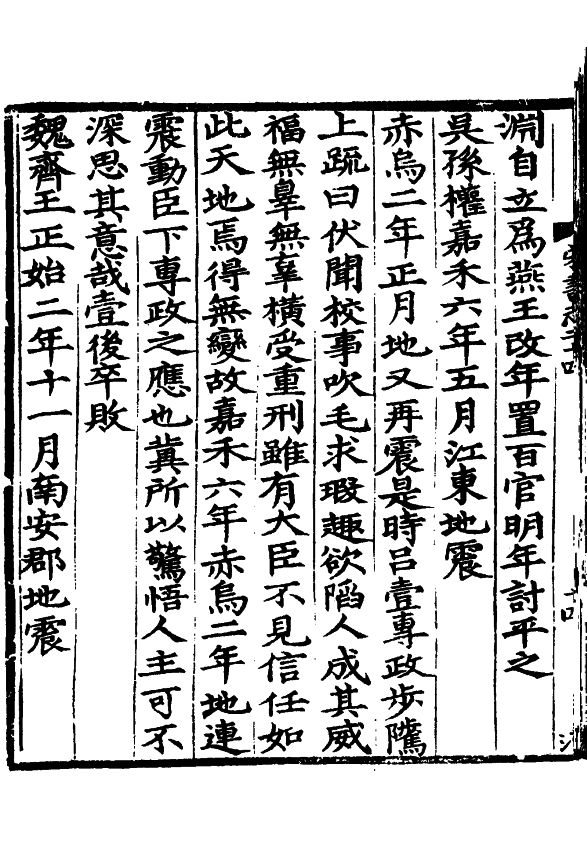 淵自立爲燕王改年置百官明年討平之
吴孫權嘉禾六年五月江東地震
赤烏二年正月地又再震是時吕壹專政步隲
上疏曰伏聞校事吹毛求瑕趣欲陷人成其威
福無辠無辜橫受重刑雖有大臣不見信任如
此天地焉得無變故嘉禾六年赤烏二年地連
震動臣下專政之應也冀所以驚悟人主可不
深思其意哉壹後卒敗
魏齊王正始二年十一月南安郡地震